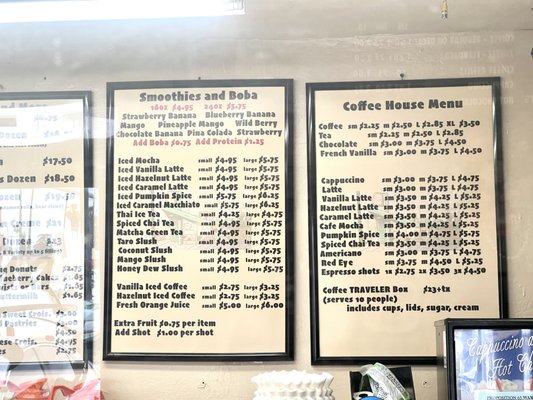 $17.50
Dozen $18.50
$19.50
Creme
$23
Donuts $2.75
$2.65
$2.75
$1.65
Sweet Crois. $3.75
Pastries $3.00
Crois. $4.75
$2.75
Smoothies and Boba
16oz $4.95 24oz $5.75
Strawberry Banana Blueberry Banana
Mango Pineapple Mango Wild Berry
Chocolate Banana Pina Colada Strawberry
Add Boba $0.75 Add Protein $1.25
Iced Mocha small $4.95 large $5.75
Iced Vanilla Latte small $4.95 large $5.75
Iced Hazelnut Latte small $4.95 large $5.75
Iced Caramel Latte small $4.95 large $5.75
Iced Pumpkin Spice small $5.75 large $6.25
Iced Caramel Macchiato small $5.75 large $6.25
Thai Ice Tea small $4.25 large $4.75
Spiced Chai Tea small $4.95 large $5.75
Matcha Green Tea small $4.95 large $5.75
Taro Slush small $4.95 large $5.75
Coconut Slush small $4.95 large $5.75
Mango Slush small $4.95 large $5.75
Honey Dew Slush small $4.95 large $5.75
Vanilla Iced Coffee small $2.75 large $3.25
Hazelnut Iced Coffee small $2.75 large $3.25
Fresh Orange Juice small $5.00 large $6.00
Extra Fruit $0.75 per item
Add Shot $1.00 per shot
Coffee House Menu
Coffee sm $2.25 M $2.50 L $2.85 XL $3.50
Tea sm $2.25 M $2.50 L $2.85
Chocolate sm $3.00 M $3.75 L $4.50
French Vanilla sm $3.00 M $3.75 L $4.50
Cappuccino sm $3.00 M $3.75 L $4.75
Latte sm $3.00 M $3.75 L $4.75
Vanilla Latte sm $3.50 M $4.25 L $5.25
Hazelnut Latte sm $3.50 M $4.25 L $5.25
Caramel Latte sm $3.50 M $4.25 L $5.25
Cafe Mocha sm $3.50 M $4.25 L $5.25
Pumpkin Spice sm $4.00 M $4.75 L $5.75
Spiced Chai Tea sm $3.50 M $4.25 L $5.25
Americano sm $3.00 M $3.75 L $4.75
Red Eye sm $3.75 M $4.50 L $5.25
Espresso shots 1x $2.75 2x $3.50 3x $4.50
Coffee TRAVELER Box $23+tx
(serves 10 people)
includes cups, lids, sugar, cream
Cappuccino
Hot Ch
PROPOSITION 65